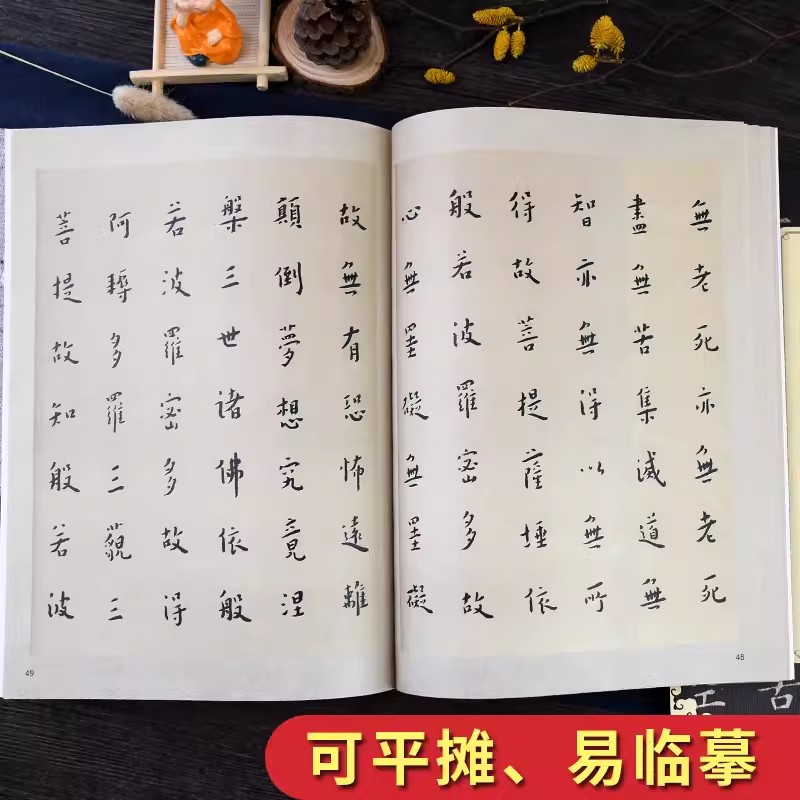 無老死亦無老死
盡無苦集滅道無
智亦無得以無所
得故菩提薩埵依
般若波羅密多故
心無罣礙無罣礙
48
故無有恐怖遠離
顛倒夢想究竟涅
槃三世諸佛依般
若波羅密多故得
阿耨多羅三藐三
菩提故知般若波
49
古
可平摊、易临摹